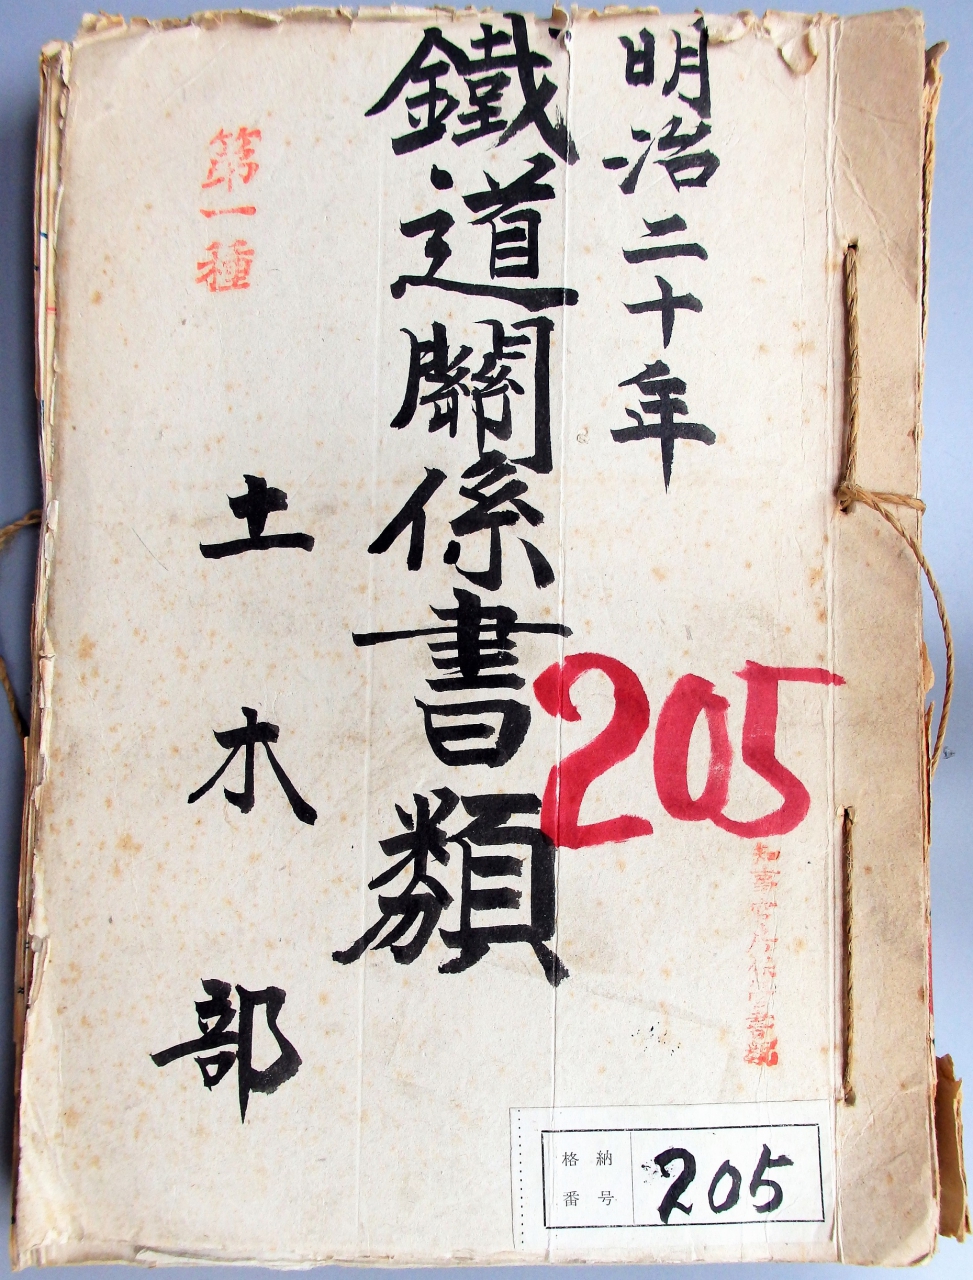 明治二十年
鐵道關係書類
土木部
第一種
205
格納
番号
205